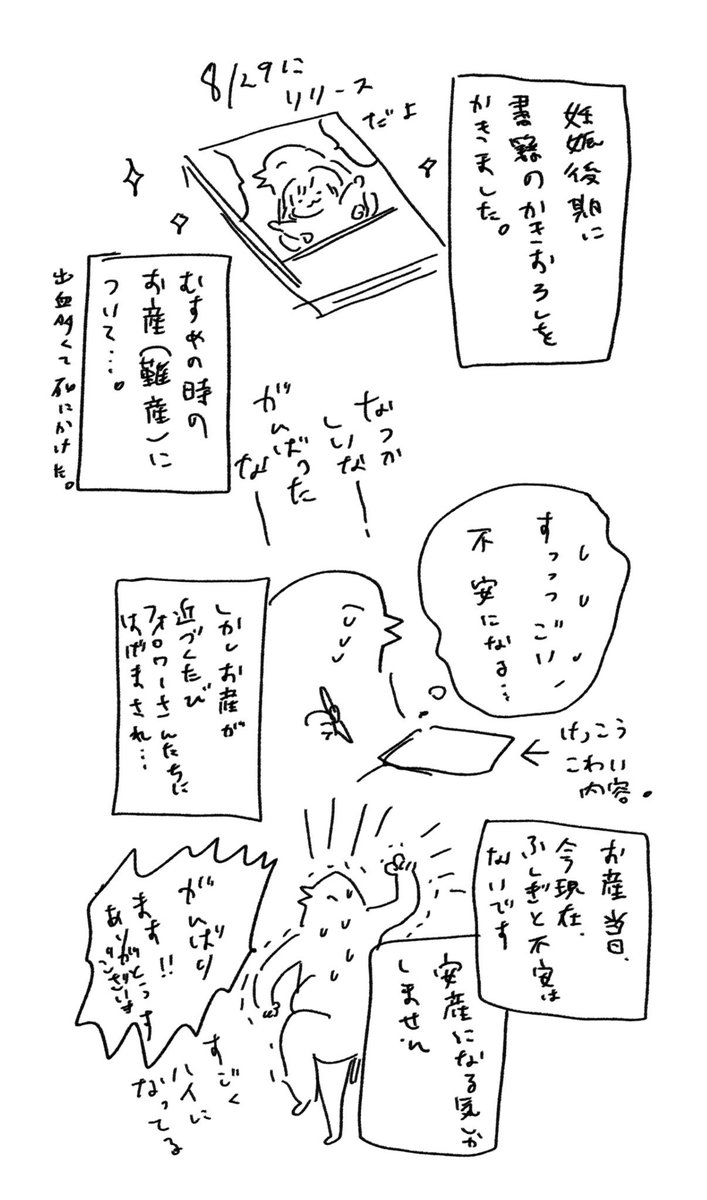 妊娠後期に
書籍のかきおろしを
かきました。
8/29に
リリース
だよ
むすめの時の
お産(難産)に
ついて…。
出血多くて死にかけた。
なつか
しいなー
がんばった
なー
すっっっごい
不安になる…
けっこう
こわい
内容。
しかしお産が
近づくたび
フォロワーさんたちに
はげまされ…
お産当日、
今現在、
ふしぎと不安は
ないです
安産になる気しか
しません
がんばり
ます!!
ありがとうっす
ございます
すごく
ハイに
なってる